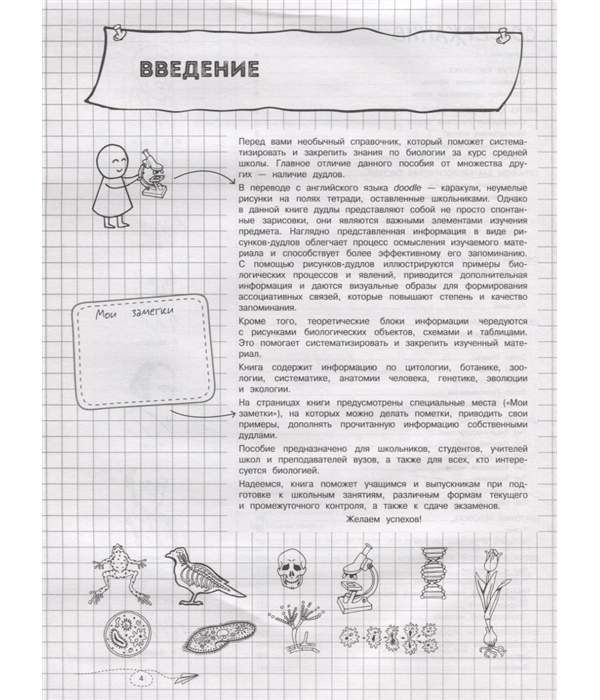 ВВЕДЕНИЕ
Перед вами необычный справочник, который поможет система-
тизировать и закрепить знания по биологии за курс средней
школы. Главное отличие данного пособия от множества дру-
гих — наличие дудлов.
В переводе с английского языка doodle — каракули, неумелые
рисунки на полях тетради, оставленные школьниками. Однако
в данной книге дудлы представляют собой не просто спонтан-
ные зарисовки, они являются важными элементами изучения
предмета. Наглядно представленная информация в виде ри-
сунков-дудлов облегчает процесс осмысления изучаемого мате-
риала и способствует более эффективному его запоминанию.
С помощью рисунков-дудлов иллюстрируются примеры био-
логических процессов и явлений, приводится дополнительная
информация и даются визуальные образы для формирования
ассоциативных связей, которые повышают степень и качество
запоминания.
Мои заметки
Кроме того, теоретические блоки информации чередуются
с рисунками биологических объектов, схемами и таблицами.
Это помогает систематизировать и закрепить изученный мате-
риал.
Книга содержит информацию по цитологии, ботанике, зоо-
логии, систематике, анатомии человека, генетике, эволюции
и экологии.
На страницах книги предусмотрены специальные места («Мои
заметки»), на которых можно делать пометки, приводить свои
примеры, дополнять прочитанную информацию собственными
дудлами.
Пособие предназначено для школьников, студентов, учителей
школ и преподавателей вузов, а также для всех, кто интере-
суется биологией.
Надеемся, книга поможет учащимся и выпускникам при под-
готовке к школьным занятиям, различным формам текущего
и промежуточного контроля, а также к сдаче экзаменов.
Желаем успехов!
4